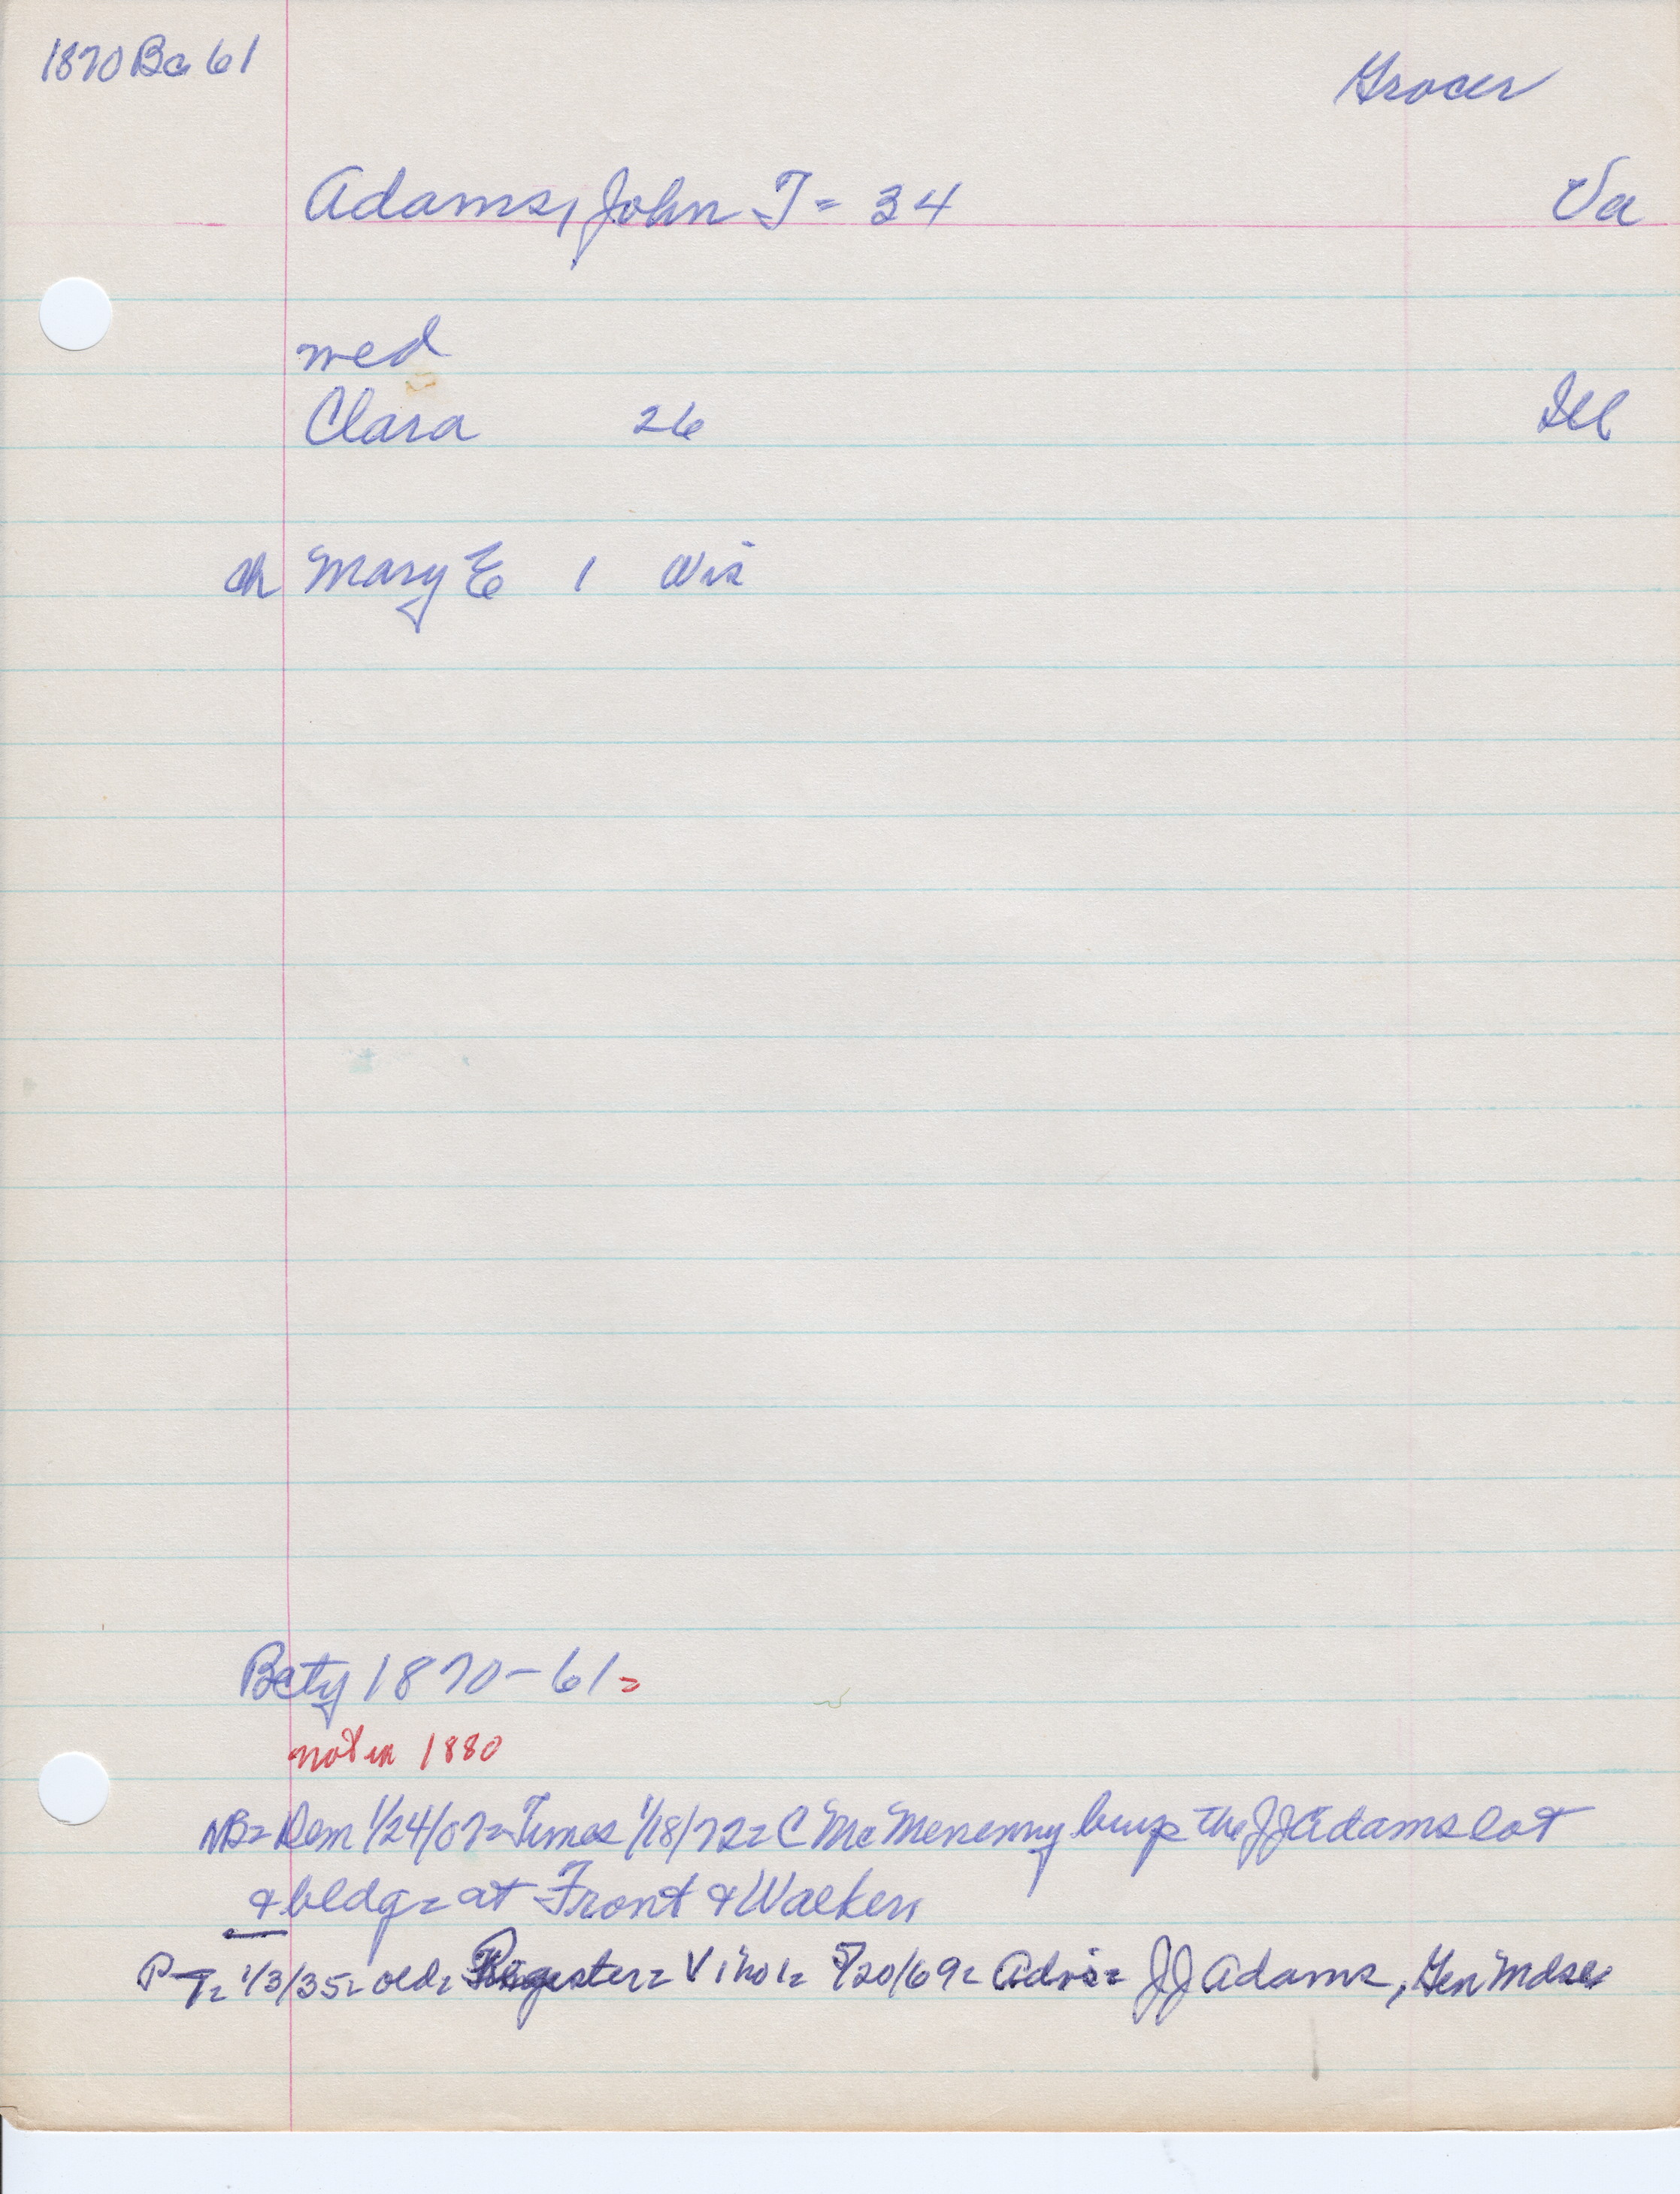 1870 Bc 61
Grocer
Adams, John T = 34 Va
med
Clara 26 Ill
ch Mary E 1 Wis
Bcty 1870-61=
not in 1880
NB= Dem 1/24/07= Times 1/18/72= C McMenenny buys the JJ Adams lot
& bldg= at Front & Walker
P-T= 1/3/35= old= Register= V1 no1= 5/20/69= Advs= JJ Adams, Gen Mdse